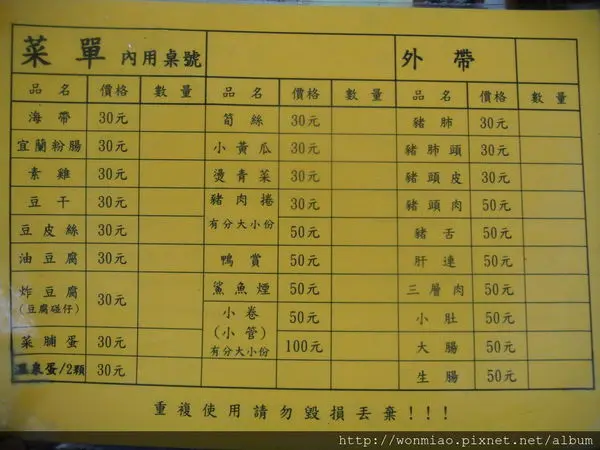 菜單 內用桌號 外帶
品名 價格 數量 品名 價格 數量 品名 價格 數量
海帶 30元 筍絲 30元 豬肺 30元
宜蘭粉腸 30元 小黃瓜 30元 豬肺頭 30元
素雞 30元 燙青菜 30元 豬頭皮 30元
豆干 30元 豬肉捲 30元 豬頭肉 50元
豆皮絲 30元 有分大小份 50元 豬舌 50元
油豆腐 30元 鴨賞 50元 肝連 50元
炸豆腐 30元 鯊魚煙 50元 三層肉 50元
(豆腐碰仔) 小卷 50元 小肚 50元
菜脯蛋 30元 (小管) 100元 大腸 50元
有分大小份
溫泉蛋/2顆 30元 生腸 50元
重複使用請勿毀損丟棄!!!
http://wonmiao.pixnet.net/album